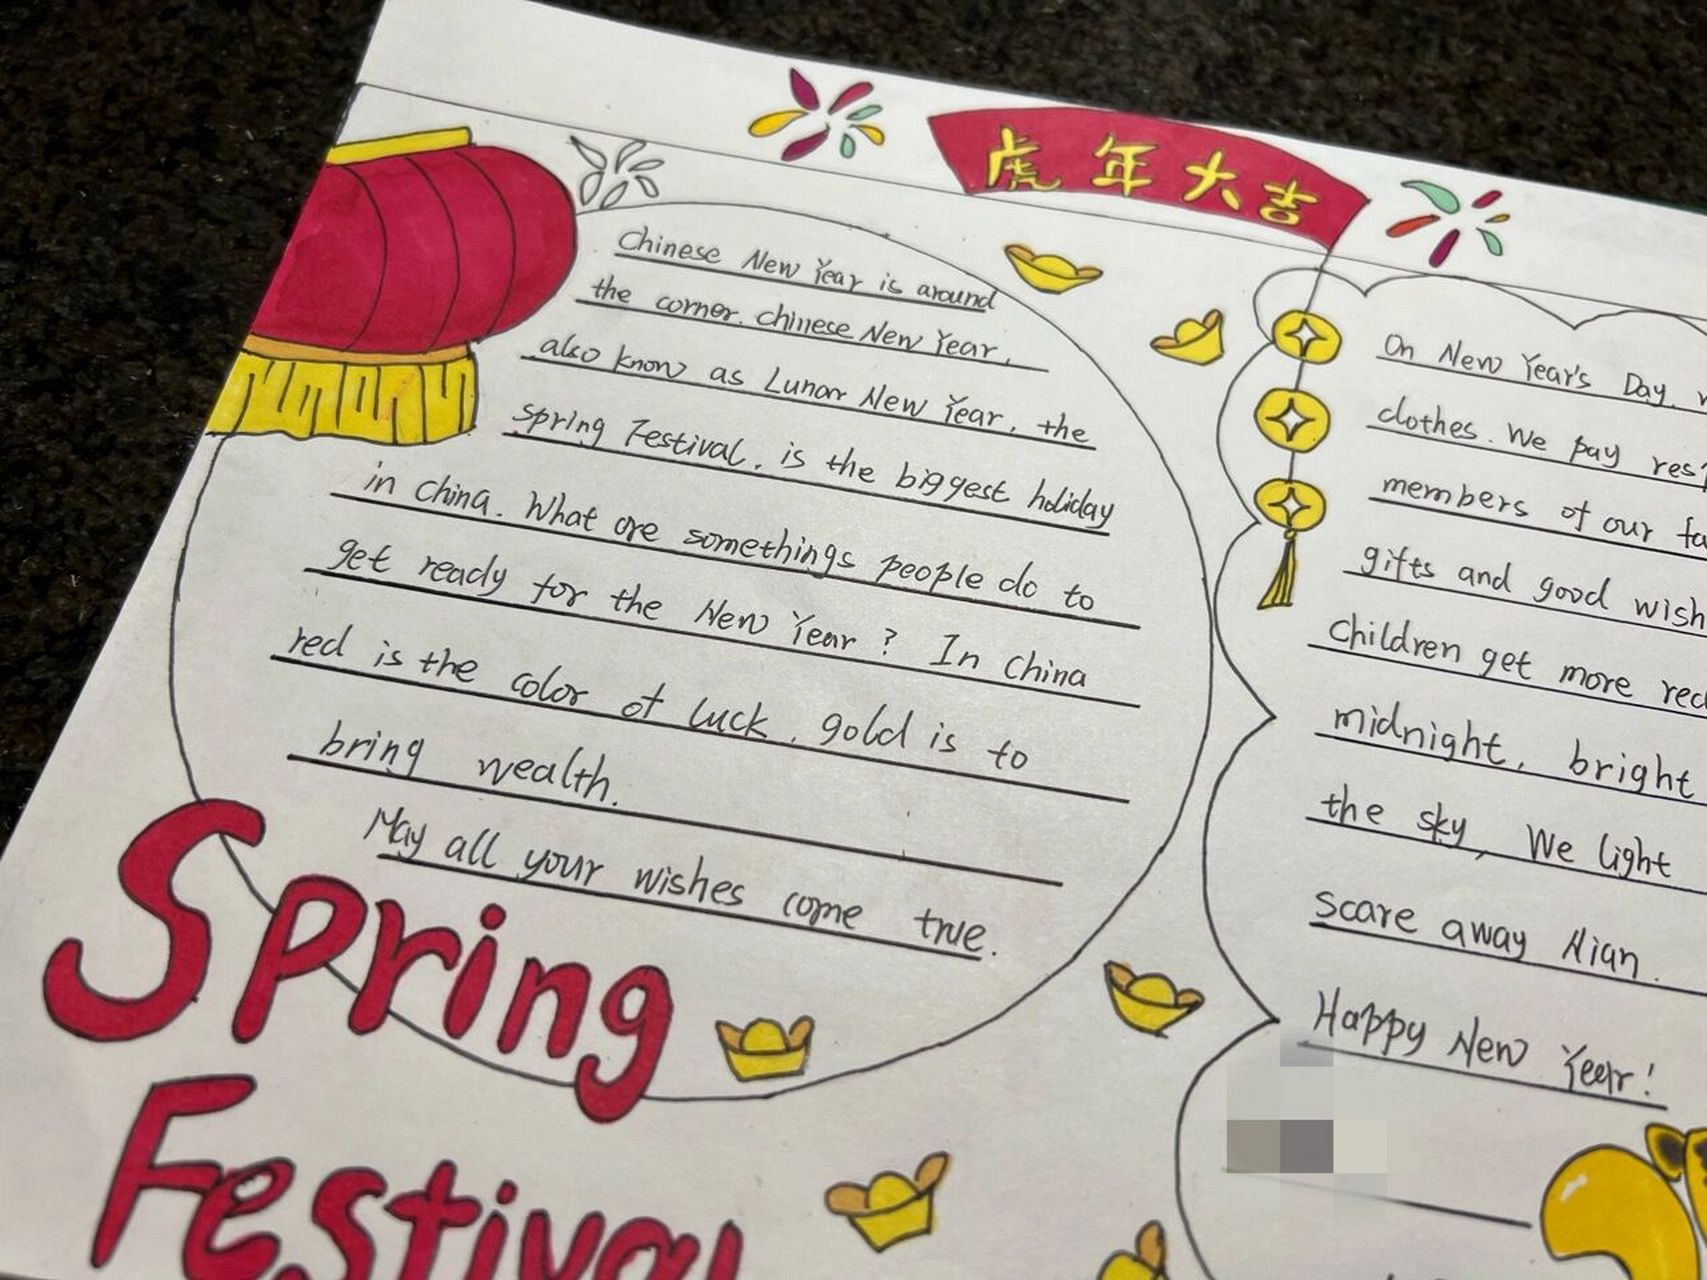 虎年大吉
Chinese New Year is around
the corner. Chinese New Year,
also know as Lunar New Year, the
spring Festival, is the biggest holiday
in China. What are somethings people do to
get ready for the New Year? In China
red is the color of luck, gold is to
bring wealth.
May all your wishes come true.
Spring
Festival
On New Year's Day,
clothes. We pay
members of our
gifts and good
Children get more
midnight, bright
the sky, We light
scare away Nian.
Happy New Year!